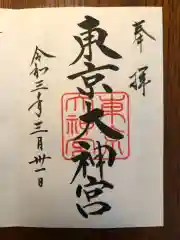 奉拝
東京大神宮
東京大神宮
令和三年三月卅一日